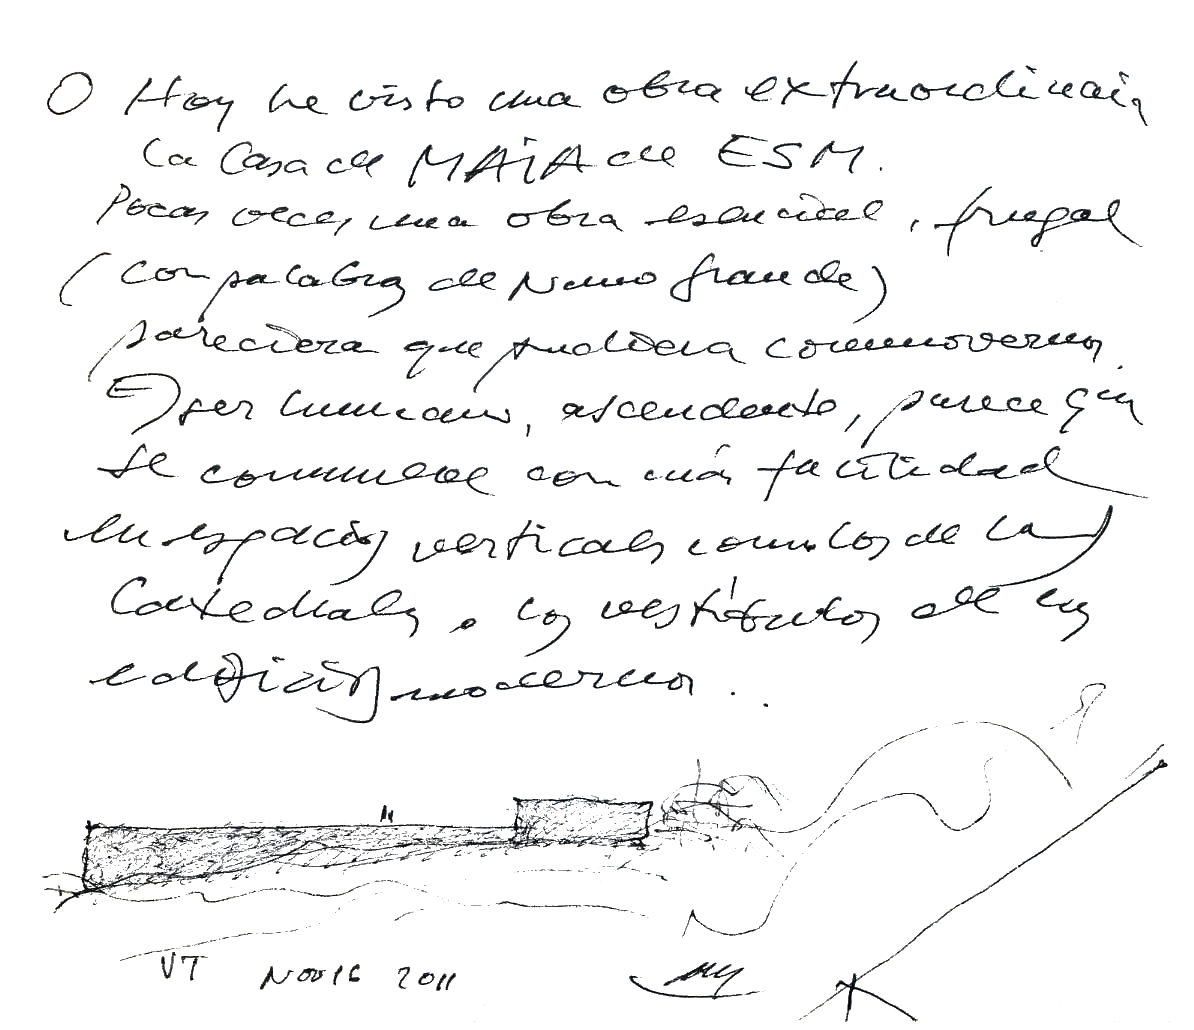 O Hoy he visto una obra extraordinaria
la Casa de MAiA de ESM.
Pocas veces, una obra esencial, frugal
(con palabras de Nuno Grande)
pareciera que pudiera conmovernos.
El ser humano, ascendente, parece que
se conmueve con más facilidad
en espacios verticales como los de la
Catedrales o los vestíbulos de los
edificios modernos.
VT Nov 16 2011